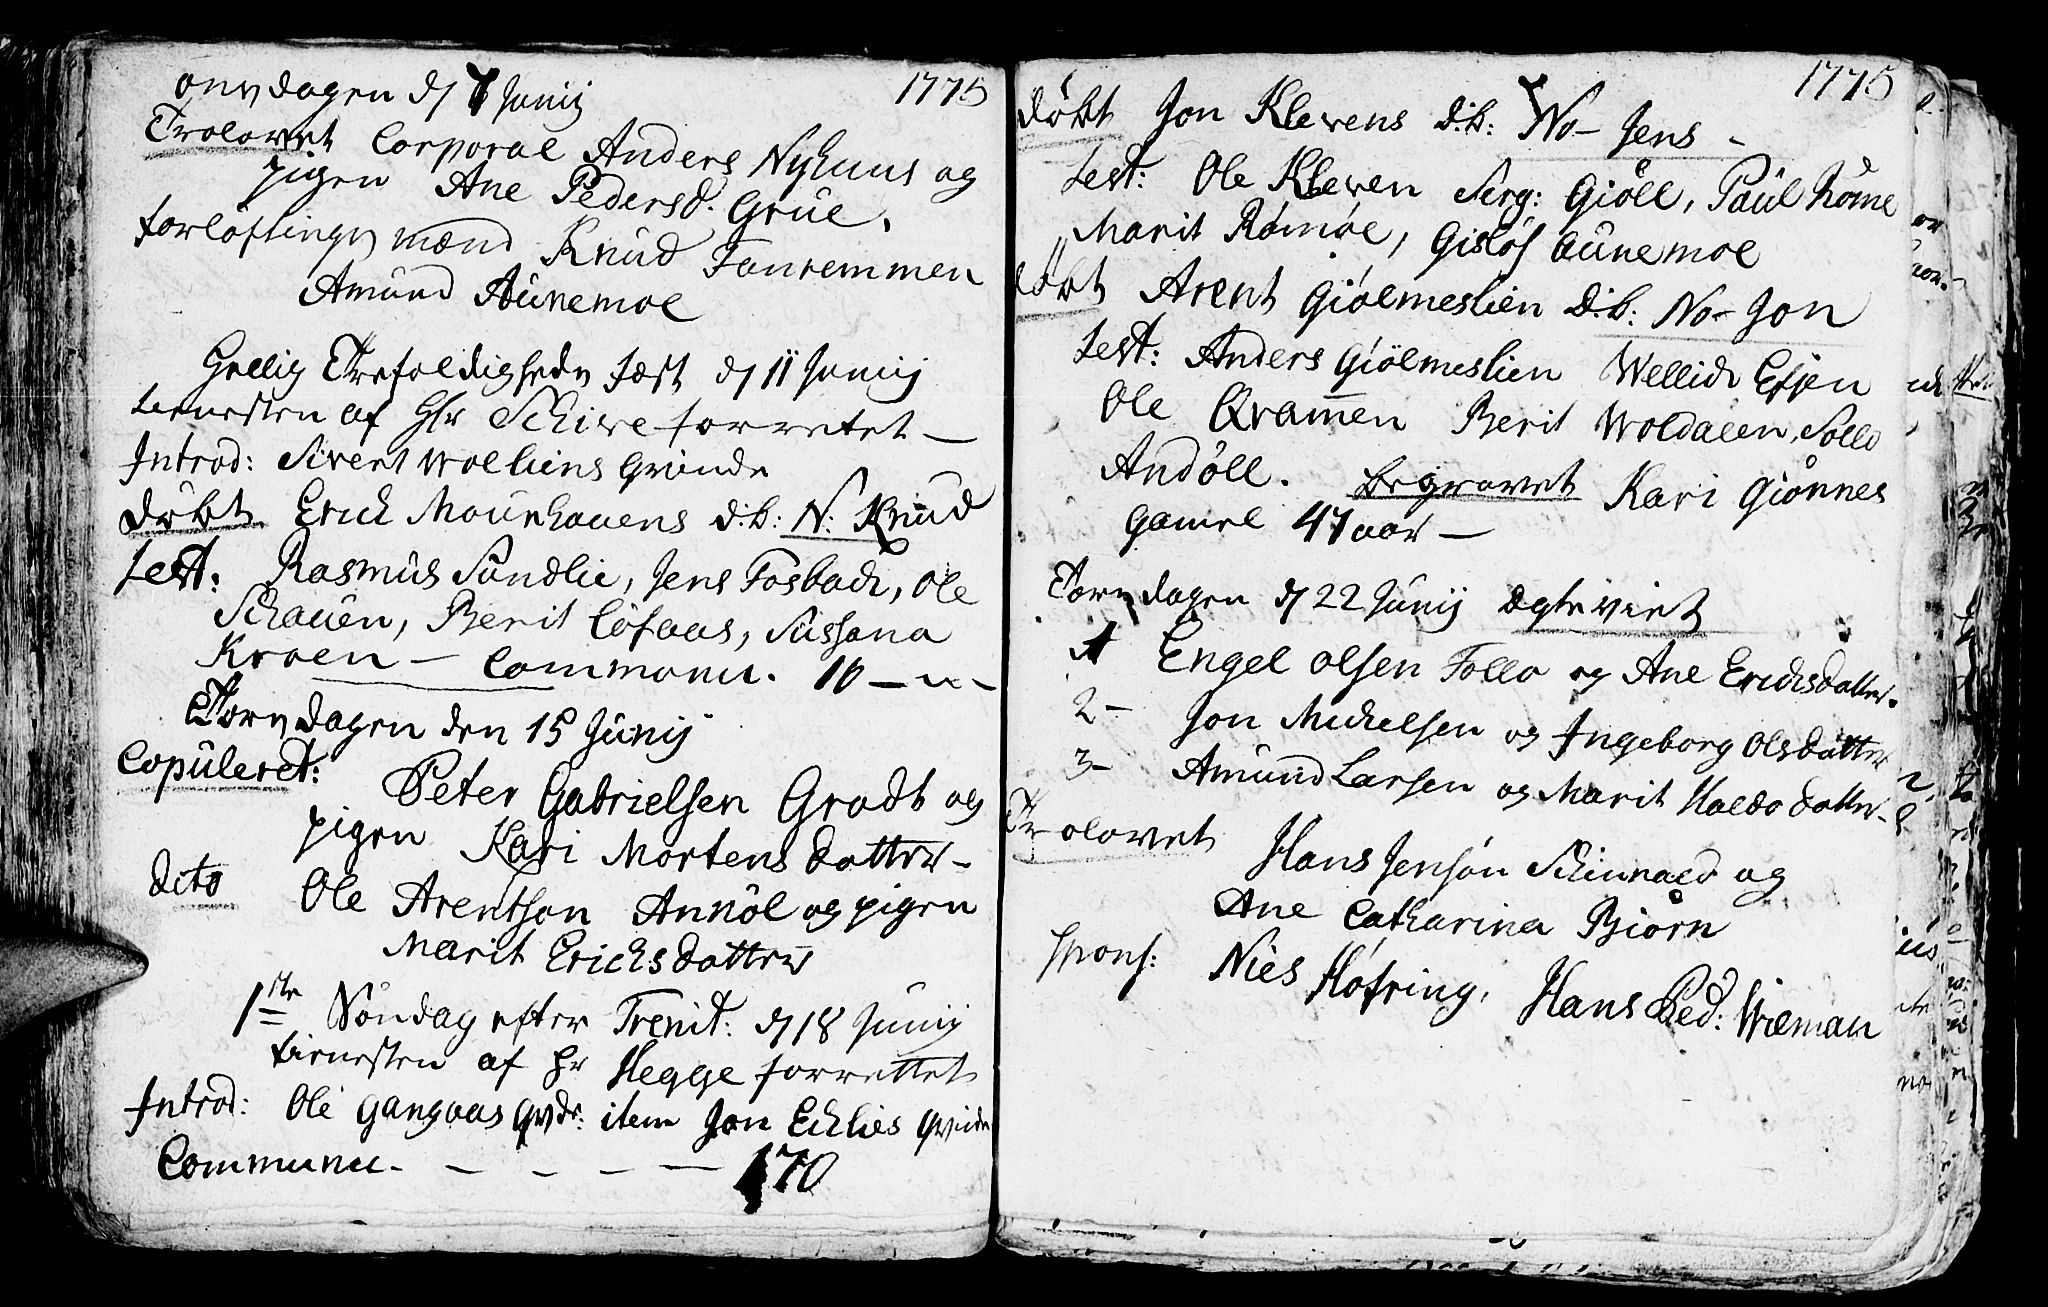 1775
onsdagen d 7 Junij
Trolovet Corporal Anders Nyhuus og
pigen Ane Pedersd. Grüe.
forlöftings mænd Knud Fonremmen
Amund Aünemoe
Hellig Trefoldigheds fæst d 11 Junij
tienesten af Hr Schive forrettet —
Introd: Sivert Wollins Qvinde
döbt Erich Mourhouens d:b: N: Knüd
test: Rasmüs Sündlie, Jens Fosbach, Ole
Schauen, Berit Löfaas, Süssana
Kroen — Communic. 16 —
Torsdagen den 15 Junij
Copuleret: Peter Gabrielsen Grodt og
pigen Kari Mortens datter —
dito Ole Arentson Annöl og pigen
Marit Erichsdatter
1ste Söndag efter Trenit: d 18 Junij
tienesten af Hr Hegge forrettet
Introd: Ole Gangaas Qvd: item Jon Echlies Qvinde
Communic. — — — — — 170
1775
döbt Jon Klevens d:b: No — Jens —
test: Ole Kleven Serg: Giöll, Paül Röme
Marit Römöe, Gislöf Aunemoe
döbt Arent Giölmeslien d:b: No — Jon
test: Anders Giölmeslien Wellich Espen
Ole Qvammen Berit Woldalen, Sollo
Andöll. begravet Kari Giönnes
gamel 47 aar —
Torsdagen d 22 Junij Egteviet
1 Engel Olsen Follo og Ane Erichsdatter.
2 — Jon Michelsen og Ingeborg Olsdatter
3 — Amund Larsen og Marit Haldo datter —
Trolovet Hans Jensön Schinnald og
Ane Catharina Biörn
spons: Niels Höfring, Hans Ped: Wieman